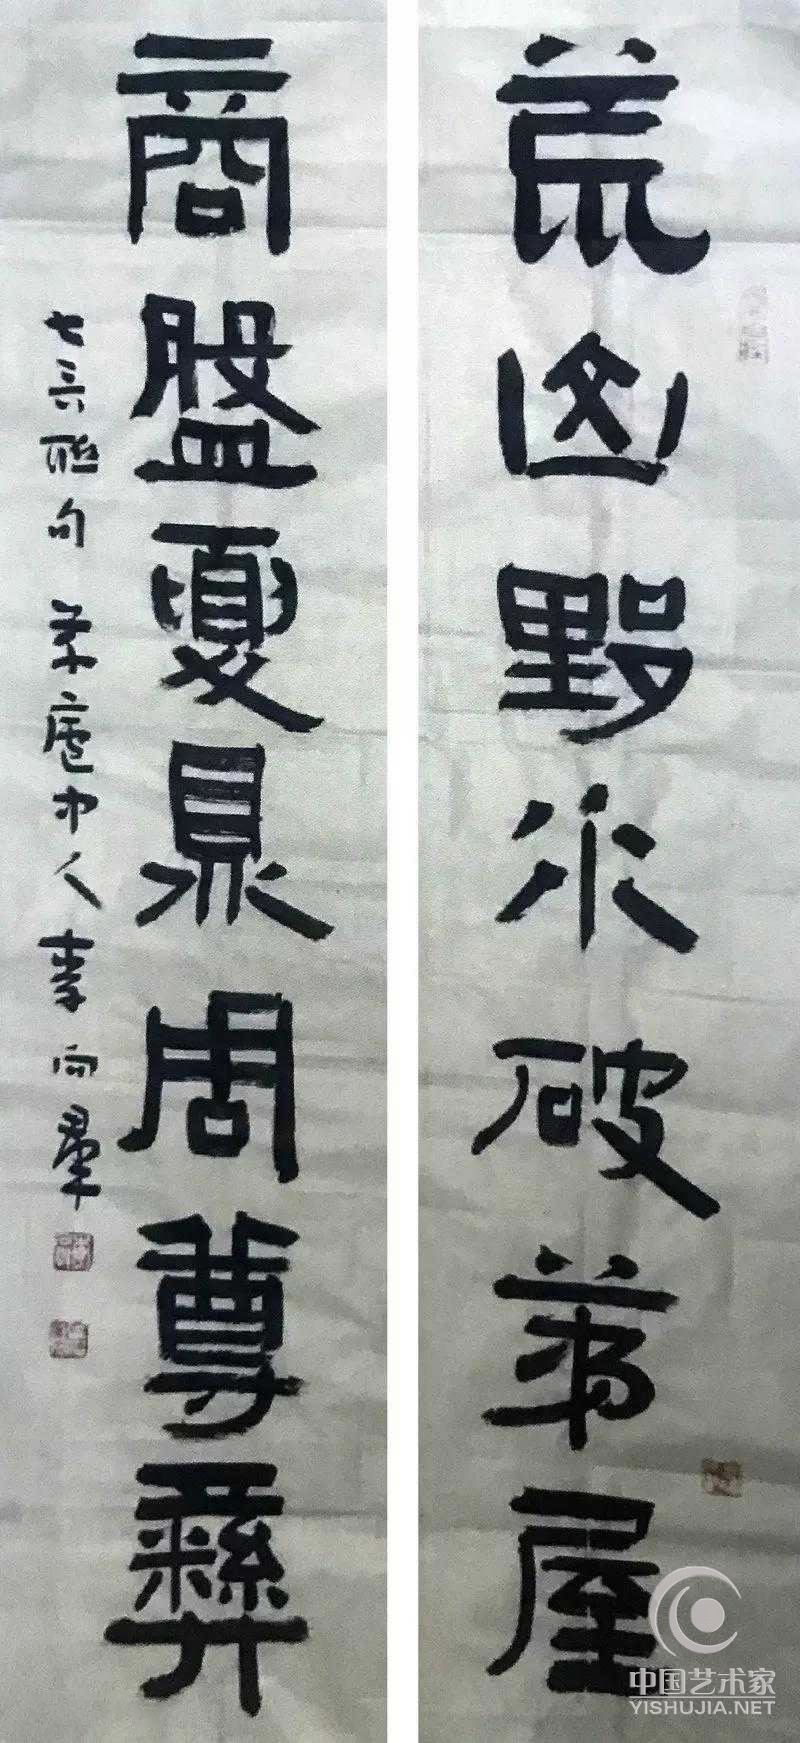 荒山野水破茅屋
商盤夏鼎周尊彝
七言聯句 茅廬中人李向羣
中国艺术家
YISHUJIA.NET